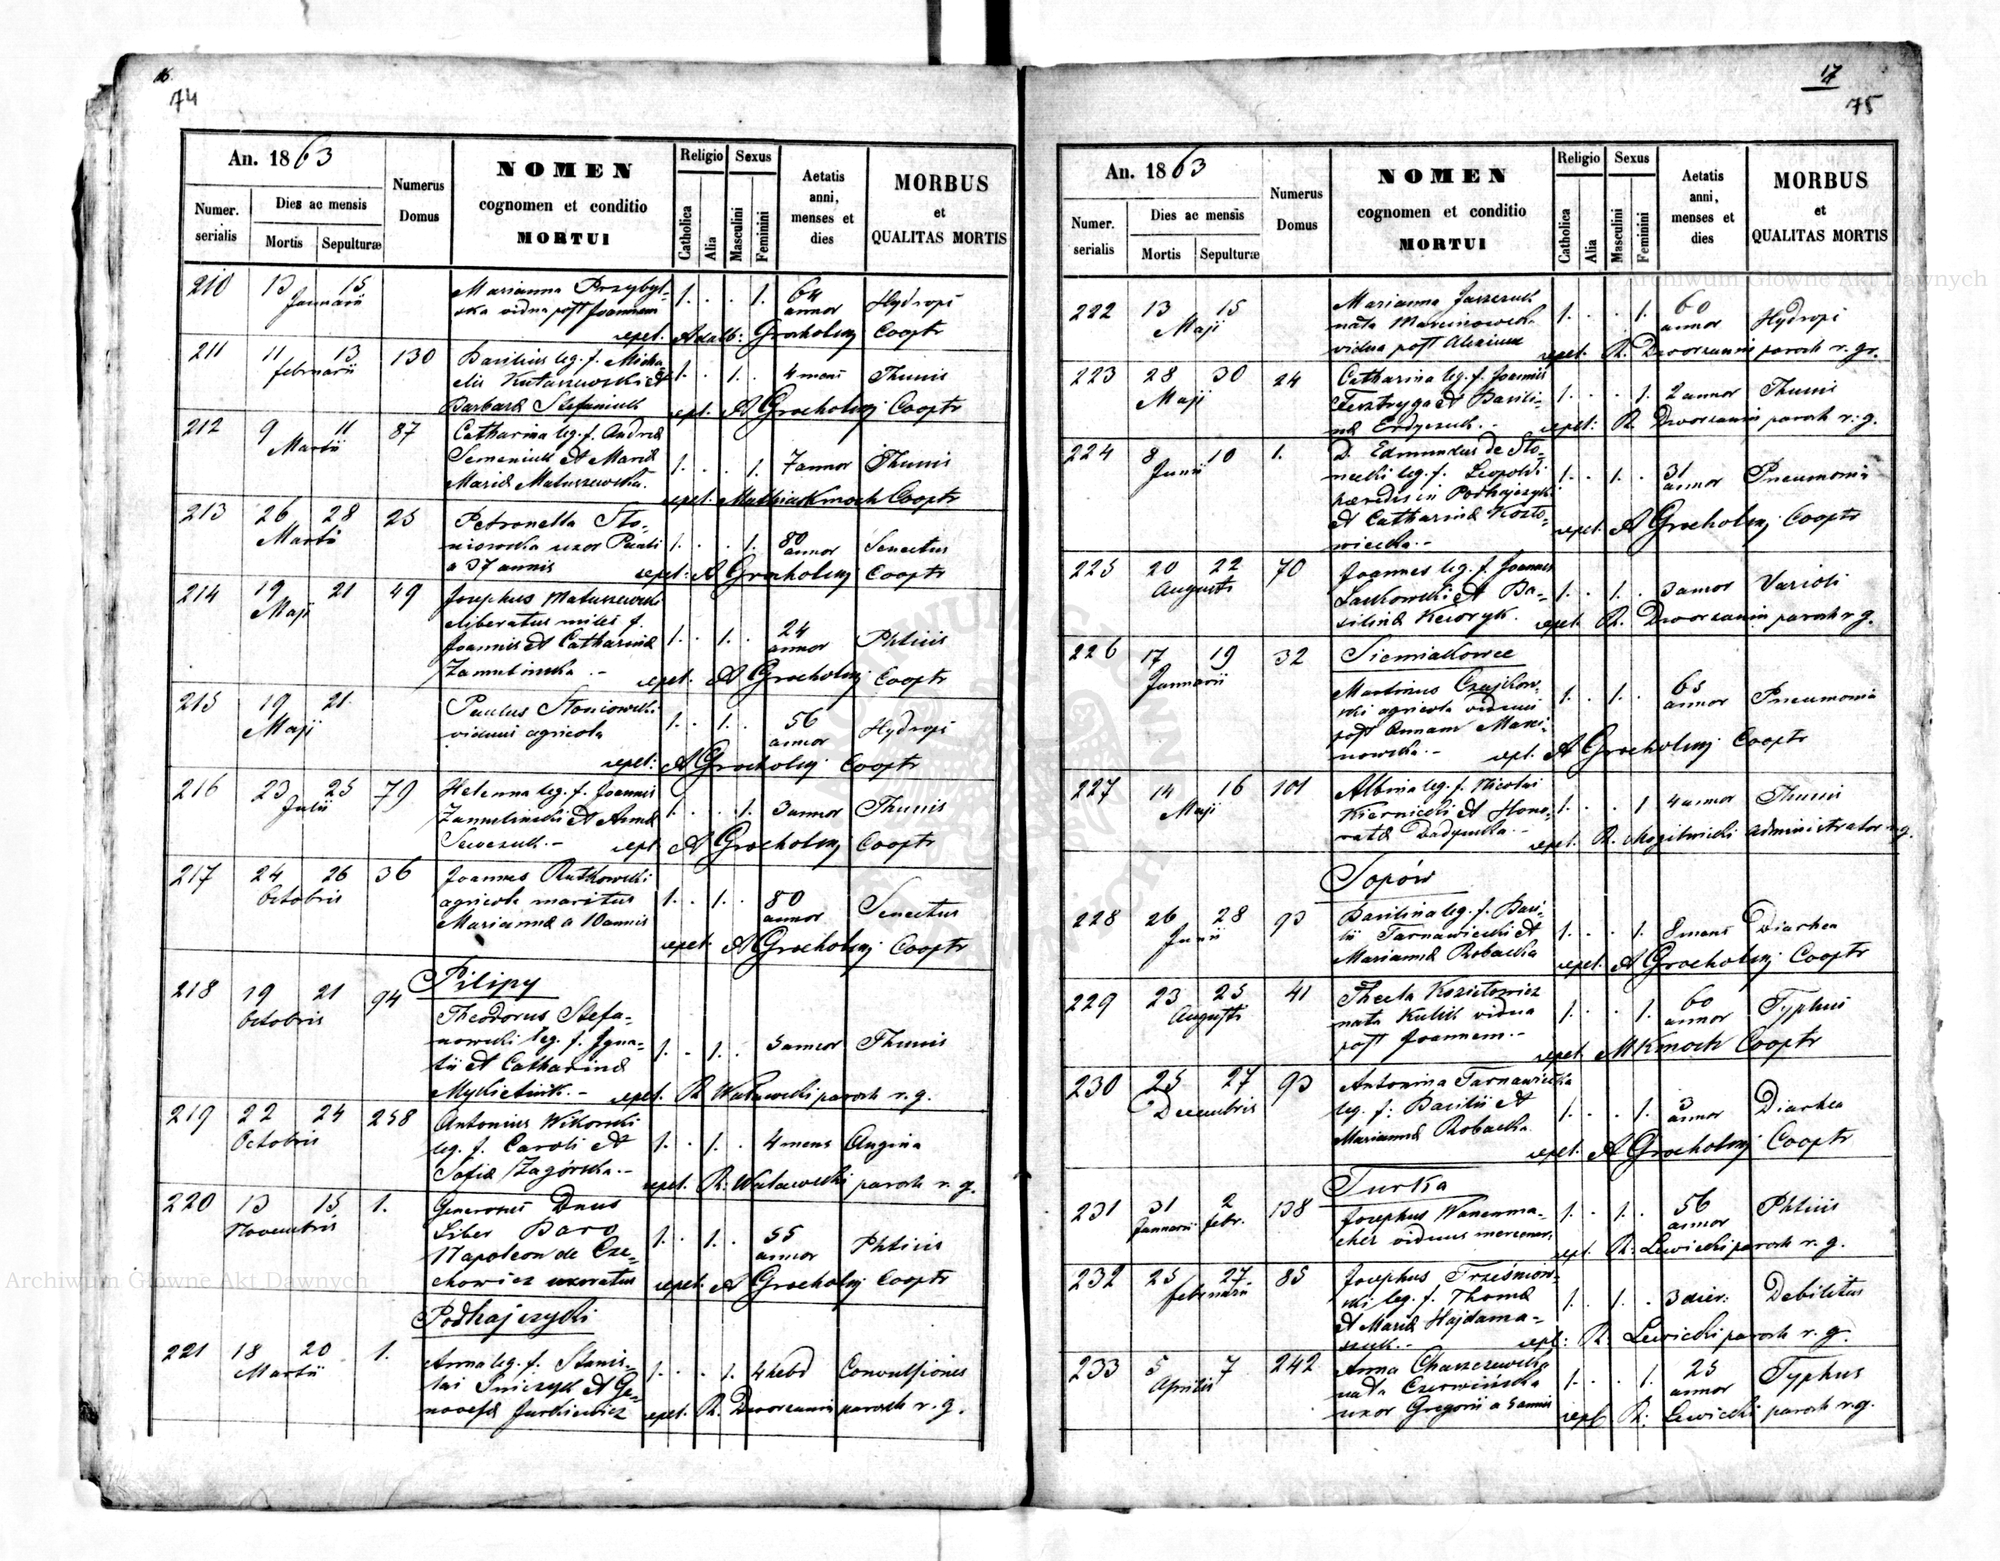 16.
74
An. 1863
Numer. serialis
Dies ac mensis
Mortis
Sepulturæ
Numerus Domus
NOMEN
cognomen et conditio
MORTUI
Religio
Catholica
Alia
Sexus
Masculini
Feminini
Aetatis
anni,
menses et
dies
MORBUS
et
QUALITAS MORTIS
210 13 15 Marianna Przybyl- 1. . . 1. 64 Hydropi
Januarii ska vidua post Joannem annor
sepel. Adalb: Grocholski Cooptr
211 11 13 130 Basilius leg. f. Micha 1. . 1. . 4 mens Thussis
februarii elis Kutaszewski et
Barbara Stefaniuk sepel. A Grocholski Cooptr
212 9 11 87 Catharina leg. f. Andreæ
Martii Semeniuk et Mariæ 1. . . 1. 7 annor Thussis
Mariæ Matuszewska. sepel. Mathias Kmoch Cooptr
213 26 28 25 Petronella Sto-
Martii niowska uxor Pauli 1. . . 1. 80 annor Senectus
a 37 annis sepel: A Grocholski Cooptr
214 19 21 49 Josephus Matuszewski
Maji liberatus miles f.
Joannis et Catharinæ 1. . 1. . 24 annor Phtisis
Zamulinska .- sepel. A Grocholski Cooptr
215 19 21 Paulus Stoniowski 1. . 1. . 56 Hydropi
Maji viduus agricola annor
sepel: A Grocholski Cooptr
216 23 25 79 Helenna leg. f. Joannis
Julii Zamulinski et Annæ 1. . . 1. 3 annor Thussis
sepel A Grocholski Cooptr
217 24 26 36 Joannes Rutkowski
Octobris agricola maritus 1. . 1. . 80 annor Senectus
Mariannæ a 10 annis
sepel. A Grocholski Cooptr
Pilipy
218 19 21 94 Theodorus Stefa-
Octobris nowski leg. f. Igna- 1. . 1. . 5 annor Thussis
tii et Catharinæ
Mykietiuk.- sepel. R Walawski paroch r. g.
219 22 24 258 Antonius Wikorski
Octobris leg. f. Caroli et 1. . 1. . 4 mens Angina
Sofiæ Zagórska.-
sepel. R. Walawski paroch r. g.
220 13 15 1. Generosus Dnus
Novembris Liber Baro
Napoleon de Cze- 1. . 1. . 55 annor Phtisis
chowicz uxoratus sepel. A Grocholski Cooptr
Podhajczyki
221 18 20 1. Anna leg. f. Stanis-
Martii lai et Ge- 1. . . 1. 4 hebd Convulsiones
novefæ Jurkiewicz sepel. R. Dworzanin paroch r. g.
17
75
An. 1863
Numer. serialis
Dies ac mensis
Mortis
Sepulturæ
Numerus Domus
NOMEN
cognomen et conditio
MORTUI
Religio
Catholica
Alia
Sexus
Masculini
Feminini
Aetatis
anni,
menses et
dies
MORBUS
et
QUALITAS MORTIS
222 13 15 Marianna Jaszczuk
Maji nata Marcinowska 1. . . 1. 60 annor Hydropi
vidua post Alexium sepel. R. Dworzanin paroch r. gr.
223 28 30 24 Catharina leg. f. Joannis
Maji et Basili- 1. . . 1. 2 annor Thussis
næ sepel: R. Dworzanin paroch r. g.
224 8 10 1. D. Edmundus de Sto-
Junii necki leg. f. Leopoldi 1. . 1. . 31 annor Pneumonia
hæredis in Podhajczyki
et Catharinæ Kozło- sepel. A Grocholski Cooptr
wiecka.-
225 20 22 70 Joannes leg. f. Joannis
Augusti Laskowski et Ba- 1. . 1. . 3 annor Varioli
silinæ sepel. R. Dworzanin paroch r. g.
226 17 19 32 Siemiakowce
Januarii Martinus Czajkow-
ski agricola viduus 1. . 1. . 65 annor Pneumonia
post Annam Marci-
nowska.- sepl. A Grocholski Cooptr
227 14 16 101 Albina leg. f. Nicolai
Maji Kiernicki et Hono- 1. . . 1 4 annor Thussis
ratæ Dadynska.- sepel. R. administrator r. g.
Topów
228 26 28 93 Basilina leg. f. Basi-
Junii lii Tarnawiecki et 1. . . 1. 8 mens Diarhea
Mariannæ Robacka sepel. A Grocholski Cooptr
229 23 25 41 Thecla Kozietowicz
Augusti nata Kulik vidua 1. . . 1. 60 annor Typhus
post Joannem.- sepel. M Kmoch Cooptr
230 25 27 93 Antonina Tarnawiecka
Decembris leg. f. Basilii et 1. . . 1. 3 annor Diarhea
Mariannæ Robacka. sepel. A Grocholski Cooptr
Turka
231 31 2 138 Josephus Wanenma- 1. . 1. . 56 annor Phtisis
Januarii febr. cher viduus mercenar.
sepl R. Lewicki paroch r. g.
232 25 27 85 Josephus Trześniow-
februarii ski leg. f. Thomæ 1. . 1. . 3 dier: Debilitus
et Mariæ Hajdama-
szuk.- sepl: R. Lewicki paroch r. g.
233 5 7 242 Anna Charzczewska
Aprilis nata Czerwińska 1. . . 1. 25 annor Typhus
uxor Gregorii a 5 annis sepl R: Lewicki paroch r. g.
Archiwum Główne Akt Dawnych
Archiwum Główne Akt Dawnych